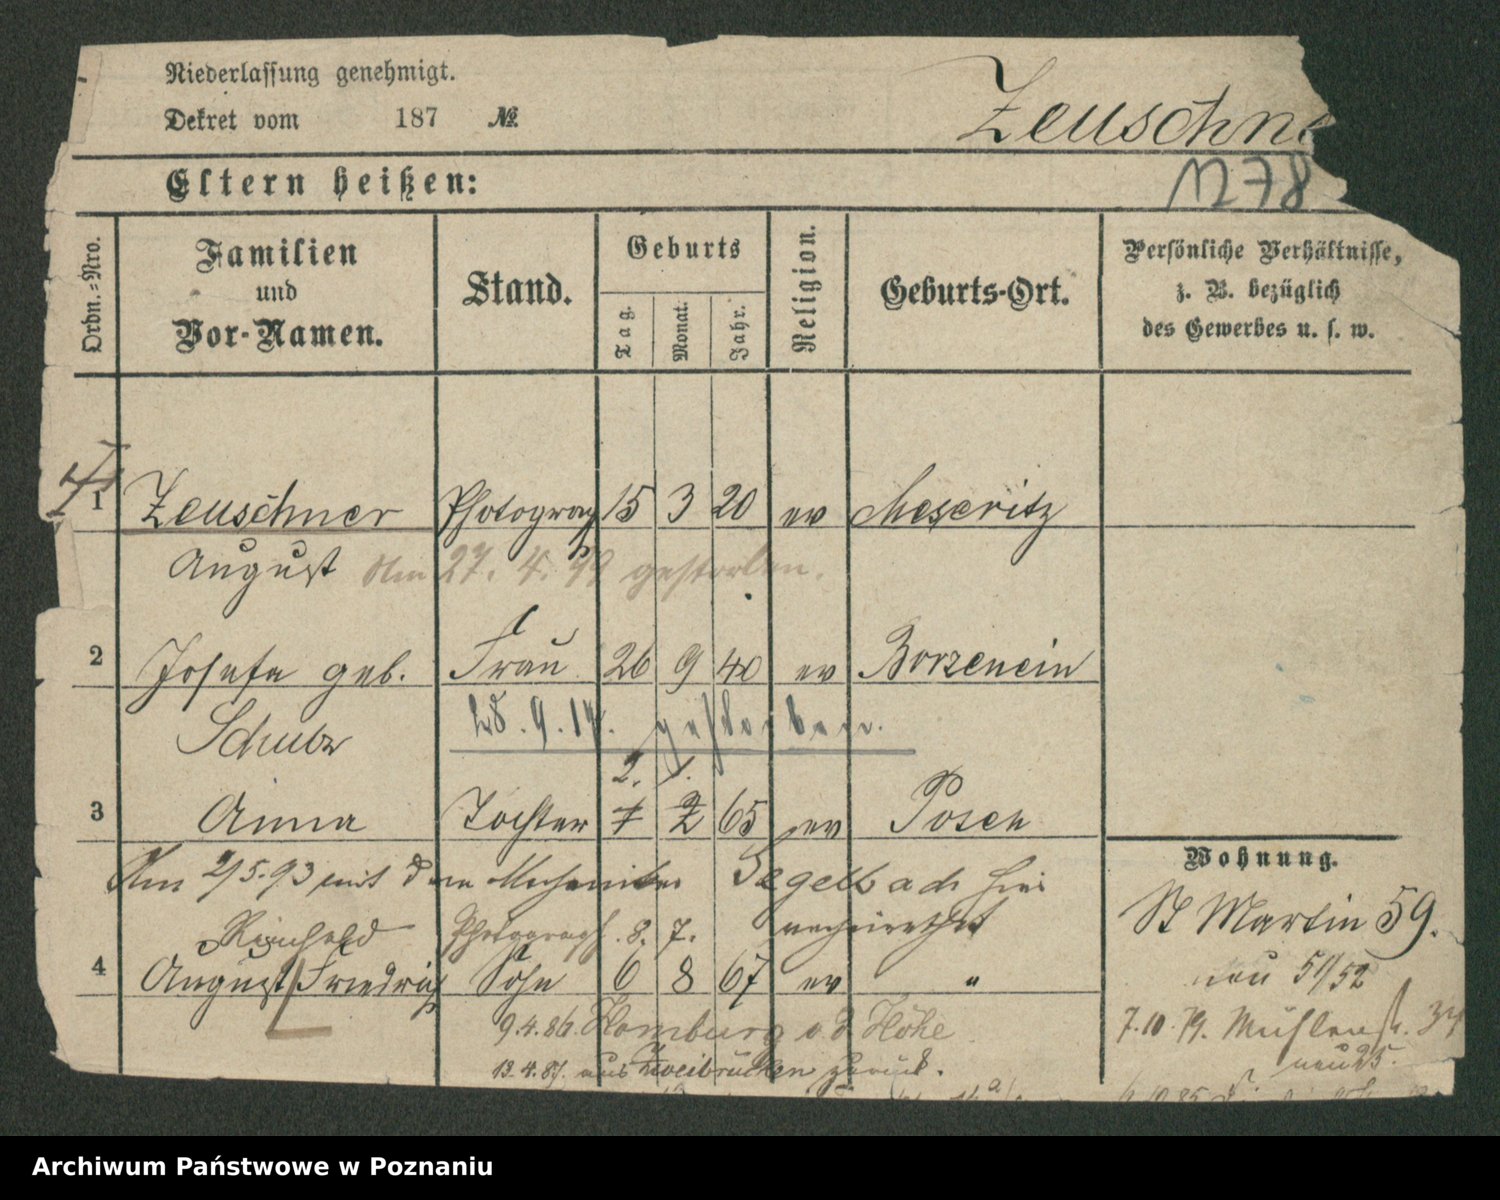 Niederlassung genehmigt.
Dekret vom 187 №
Zeuschne
1278
Eltern heißen:
Ordn.-Nro.
Familien
und
Vor-Namen.
Stand.
Geburts
Tag.
Monat.
Jahr.
Religion.
Geburts-Ort.
Persönliche Verhältnisse,
z. B. bezüglich
des Gewerbes u. s. w.
1 Zeuschner Photograp 15 3 20 ev Meseritz
August Am 27. 4. 99 gestorben.
2 Josefa geb. Frau 26 9 40 ev Borzencin
Schubz
28.9.14. gestorben.
2. 1.
3 Anna Tochter 1 2 65 ev Posen
Wohnung.
Am 2/5.93 mit dem Mechaniker Segelbach hier
verheirathet
St Martin 59.
Photograph. 8. 7.
4 August Friedrich Sohn 6 8 67 ev "
neu 51/52
9.4.86. Homburg v d Höhe
7.10.79. Mühlenstr. 34
neu 25.
13.4.87. aus Zweibrücken zurück.
Archiwum Państwowe w Poznaniu